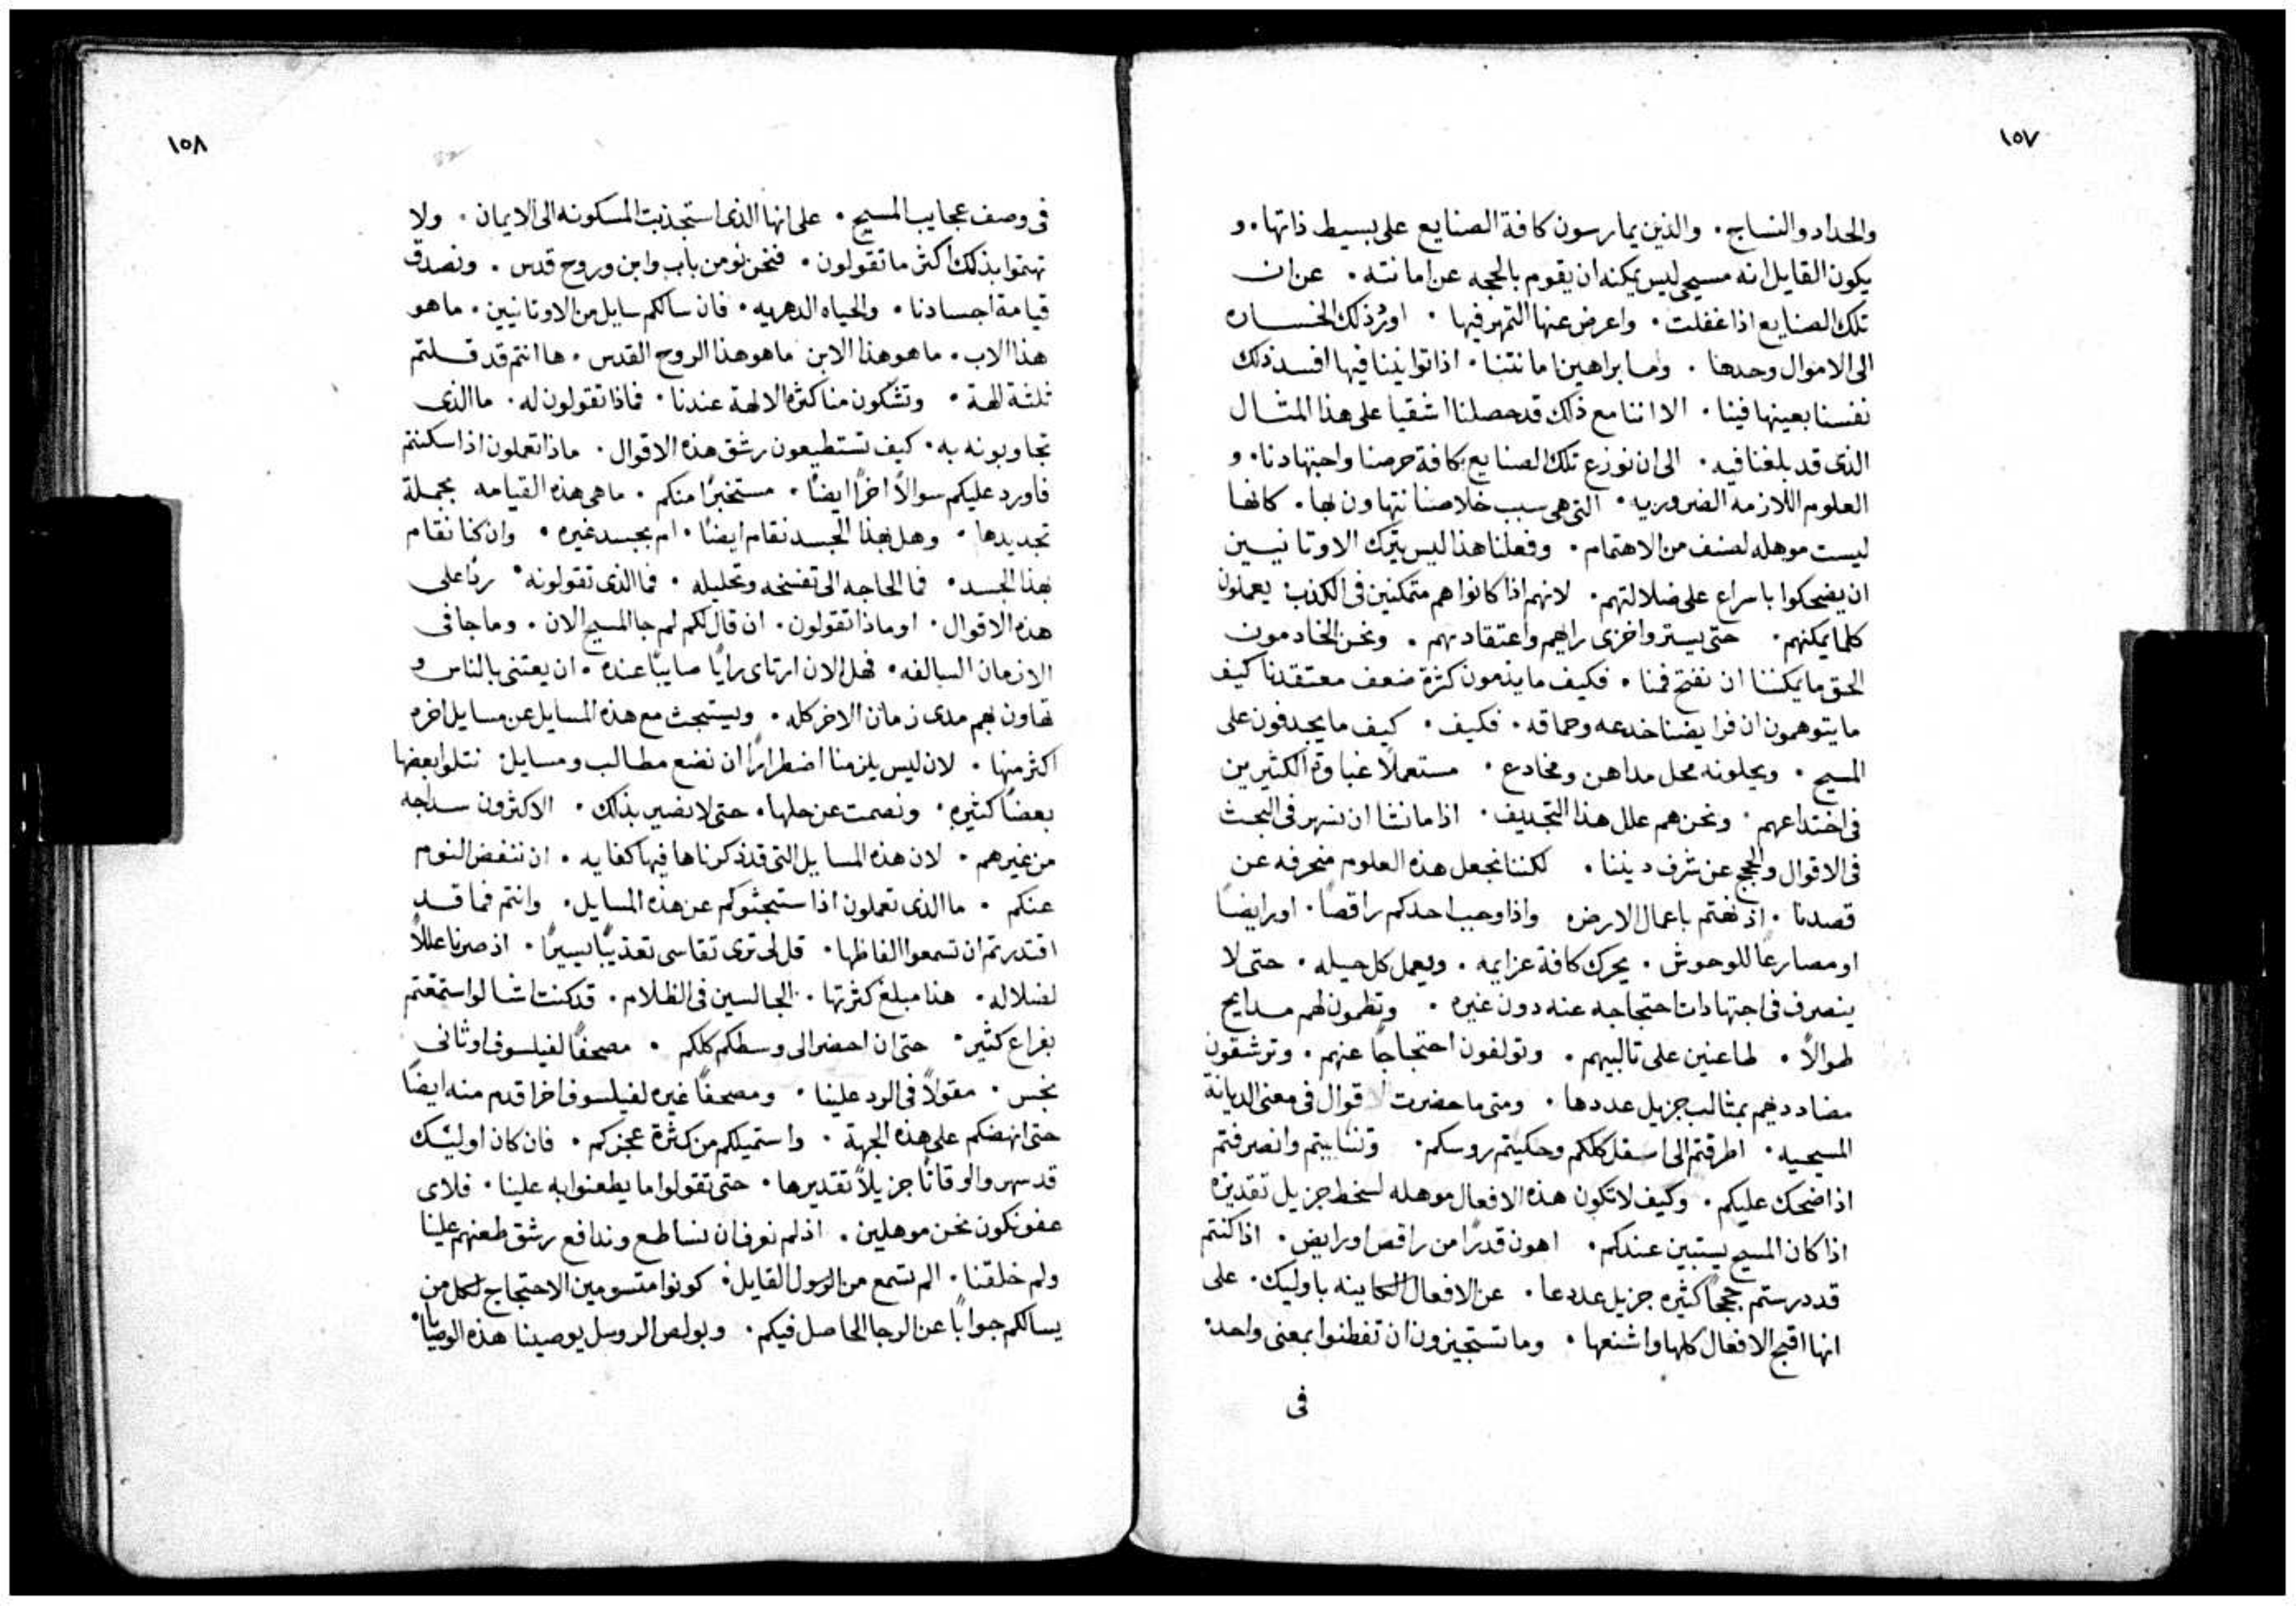 ١٥٧
والحداد والنساج. والذين يمارسون كافة الصنايع على بسيط ذاتها. و
يكون القايل انه مسيحي ليس يمكنه ان يقوم بالحجه عن امانته. عن ان
تلك الصنايع اذا غفلت. واعرض عنها التمهر فيها. اورد ذلك الخساره
الى الاموال وحدها. واما براهين امانتنا. اذا توانينا فيها افسد ذلك
نفسنا بعينها فينا. الا اننا مع ذلك قد حصلنا اشقيا على هذا المثال
الذى قد بلغنا فيه. الى ان نوزع تلك الصنايع كافة حرصنا واجتهادنا. و
العلوم اللازمه الضروريه. التى هى سبب خلاصنا نتهاون بها. كانها
ليست موهله لصنف من الاهتمام. وفعلنا هذا ليس يترك الاوثانيين
ان يضحكوا باسراع على ضلالتهم. لانهم اذا كانوا هم متمكنين فى الكذب يعملون
كلما يمكنهم. حتى يستروا خزى رايهم واعتقادهم. ونحن الخادمون
الحق ما يمكننا ان نفتح فمنا. فكيف ما يذمون كثرة ضعف معتقدنا كيف
ما يتوهمون ان فرايضنا خدعه وحماقه. فكيف. كيف ما يجدفون على
المسيح. ويحلونه محل مداهن ومخادع. مستعملاً غباوة الكثيرين
فى اختداعهم. ونحن هم علل هذا التجديف. اذا ما نشا ان نسهر فى البحث
فى الاقوال والحجج عن شرف ديننا. لكننا نجعل هذه العلوم منحرفه عن
قصدنا. اذ نهتم باعمال الارض واذا وحب احدكم راقصاً. او رايضاً
او مصارعاً للوحوش. يحرك كافة عزايمه. ويعمل كل حيله. حتى لا
ينصرف فى اجتهادات احتجاجه عنه دون غيره. وتنظمون لهم مدايح
طوالاً. طاعنين على ثالبيهم. وتولفون احتجاجاً عنهم. وترشقون
مضاددهم بمثالب جزيل عددها. ومتى ما حضرت الاقوال فى معنى الديانة
المسيحيه. اطرقتم الى اسفل كلكم وحكيتم روسكم. وتثاييتم وانصرفتم
اذا ضحك عليكم. وكيف لا تكون هذه الافعال موهله لسخط جزيل تقديره
اذا كان المسيح يستبين عندكم. اهون قدراً من راقص او رايض. اذا كنتم
قد درستم حججاً كثيره جزيل عددها. عن الافعال الكاينه باوليك. على
انها اقبح الافعال كلها واشنعها. وما تستجيزون ان تفطنوا بمعنى واحد.
فى
١٥٨
فى وصف عجايب المسيح. على انها الذى استجذبت المسكونه الى الايمان. ولا
تهتموا بذلك اكثر ما تقولون. فنحن نومن باب وابن وروح قدس. ونصدق
قيامة اجسادنا. والحياه الدهريه. فان سالكم سايل من الاوثانيين. ما هو
هذا الاب. ما هو هذا الابن ما هو هذا الروح القدس. ها انتم قد قلتم
ثلثة الهة. وتشكون منا كثرة الالهة عندنا. فماذا تقولون له. ما الذى
تجاوبونه به. كيف تستطيعون رشق هذه الاقوال. ماذا تعملون اذا سكتتم
فاورد عليكم سوالاً اخراً ايضاً. مستخبراً منكم. ما هى هذه القيامه بجملة
تجديدها. وهل بهذا الجسد نقام ايضاً. ام بجسد غيره. وان كنا نقام
بهذا الجسد. فما الحاجه الى تفسخه وتحليله. فما الذى تقولونه. رداً على
هذه الاقوال. او ماذا تقولون. ان قال لكم لم جا المسيح الان. وما جا فى
الازمان السالفه. فهل الان ارتاى رايا صايباً عنده. ان يعتنى بالناس و
تهاون بهم مدى زمان الاخر كله. ويستبحث مع هذه المسايل عن مسايل اخره
اكثر منها. لان ليس يلزمنا اضطراراً ان نضع مطالب ومسايل نتلوا بعضها
بعضاً كثيره. ونصمت عن حلها. حتى لا نضير بذلك. الاكثرون سداجه
من غيرهم. لان هذه المسايل التى قد ذكرناها فيها كفايه. ان ننفض النوم
عنكم. ما الذى تعملون اذا ستبحثوكم عن هذه المسايل. وانتم فما قد
اقتدرتم ان تسمعوا الفاظها. قل لى ترى نقاسى تعذيباً يسيراً. اذ صرنا عللاً
لضلاله. هذا مبلغ كثرتها. الجالسين فى الظلام. قد كنت اشا لو استمتعتم
بفراغ كثير. حتى ان احضر الى وسطكم كلكم. مصحفاً لفيلسوف اوثانى
نجس. مقولاً فى الرد علينا. ومصحفاً غيره لفيلسوف اخر اقدم منه ايضاً
حتى انهضكم على هذه الجهة. واستميلكم من كثرة عجزكم. فان كان اوليك
قد سهروا اوقاتاً جزيلاً تقديرها. حتى تقولوا ما يطعنوا به علينا. فلاى
عفو نكون نحن موهلين. اذ لم نعرف ان نساطع وندافع رشق طعنهم علينا
ولم خلقنا. الم تسمع من الرسول القايل. كونوا متسومين الاحتجاج لكل من
يسالكم جواباً عن الرجا الحاصل فيكم. وبولص الرسل يوصينا هذه الوصيا.